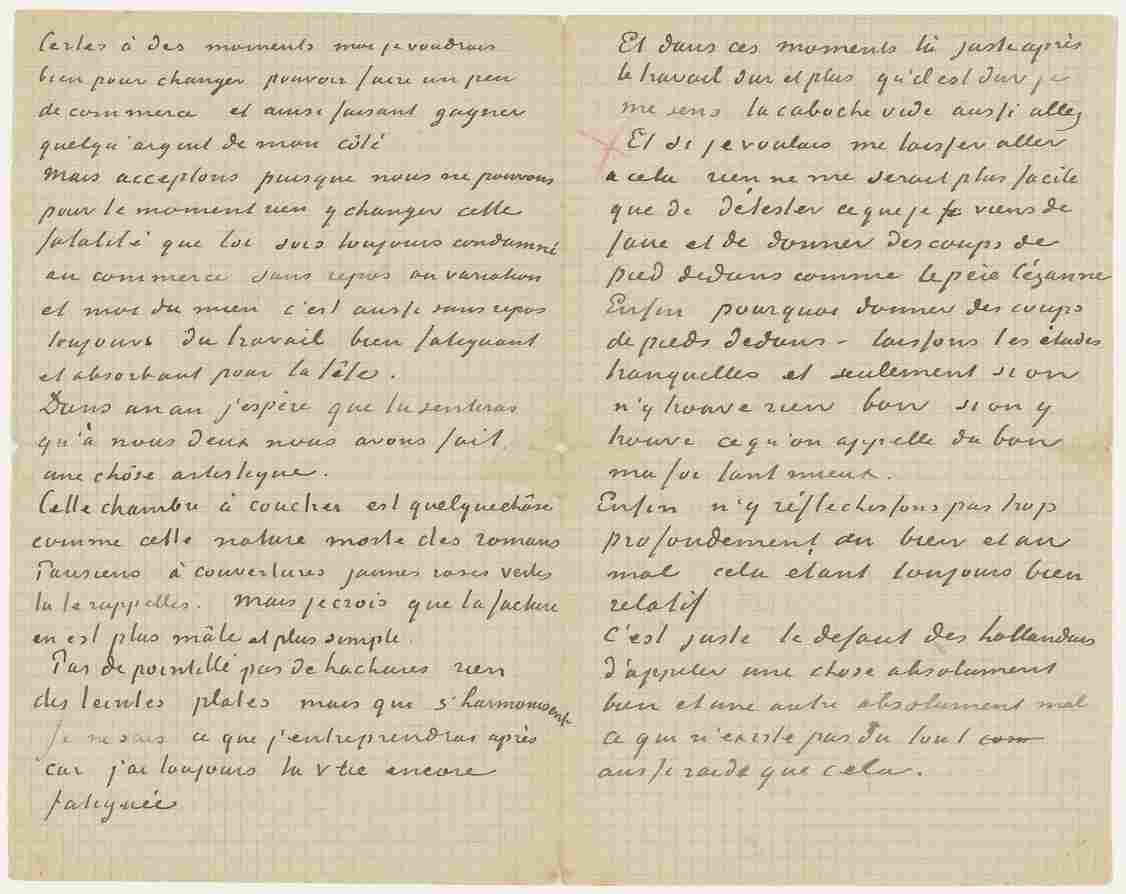 Certes à des moments moi je voudrais
bien pour changer pouvoir faire un peu
de commerce et ainsi faisant gagner
quelqu'argent de mon côté
Mais acceptons puisque nous ne pouvons
pour le moment rien y changer cette
fatalité que toi sois toujours condamné
au commerce sans repos ou variation
et moi du mien c'est aussi sans repos
toujours du travail bien fatiguant
et absorbant pour la tête.
Dans un an j'espère que tu sentiras
qu'à nous deux nous avons fait
une chôse artistique.
Cette chambre à coucher est quelquechôse
comme cette nature morte des romans
Parisiens à couvertures jaunes roses vertes
tu te rappelles. Mais je crois que la facture
en est plus mâle et plus simple.
Pas de pointillé pas de hachures rien
des teintes plates mais qui s'harmonisent
Je ne sais ce que j'entreprendrai après
car j'ai toujours la vue encore
fatiguée
Et dans ces moments là juste après
le travail dur et plus qu'il est dur je
me sens la caboche vide aussi allez
Et si je voulais me laisser aller
a cela rien ne me serait plus facile
que de détester ce que je viens de
faire et de donner des coups de
pied dedans comme le père Cézanne
Enfin pourquoi donner des coups
de pieds dedans – laissons les études
tranquelles et seulement si on
n'y trouve rien bon si on y
trouve ce qu'on appelle du bon
ma foi tant mieux.
Enfin n'y réflechissons pas trop
profondement au bien et au
mal cela etant toujours bien
relatif
C'est juste le defaut des hollandais
d'appeler une chose absolument
bien et une autre absolument mal
ce qui n'existe pas du tout
aussi raide que cela.